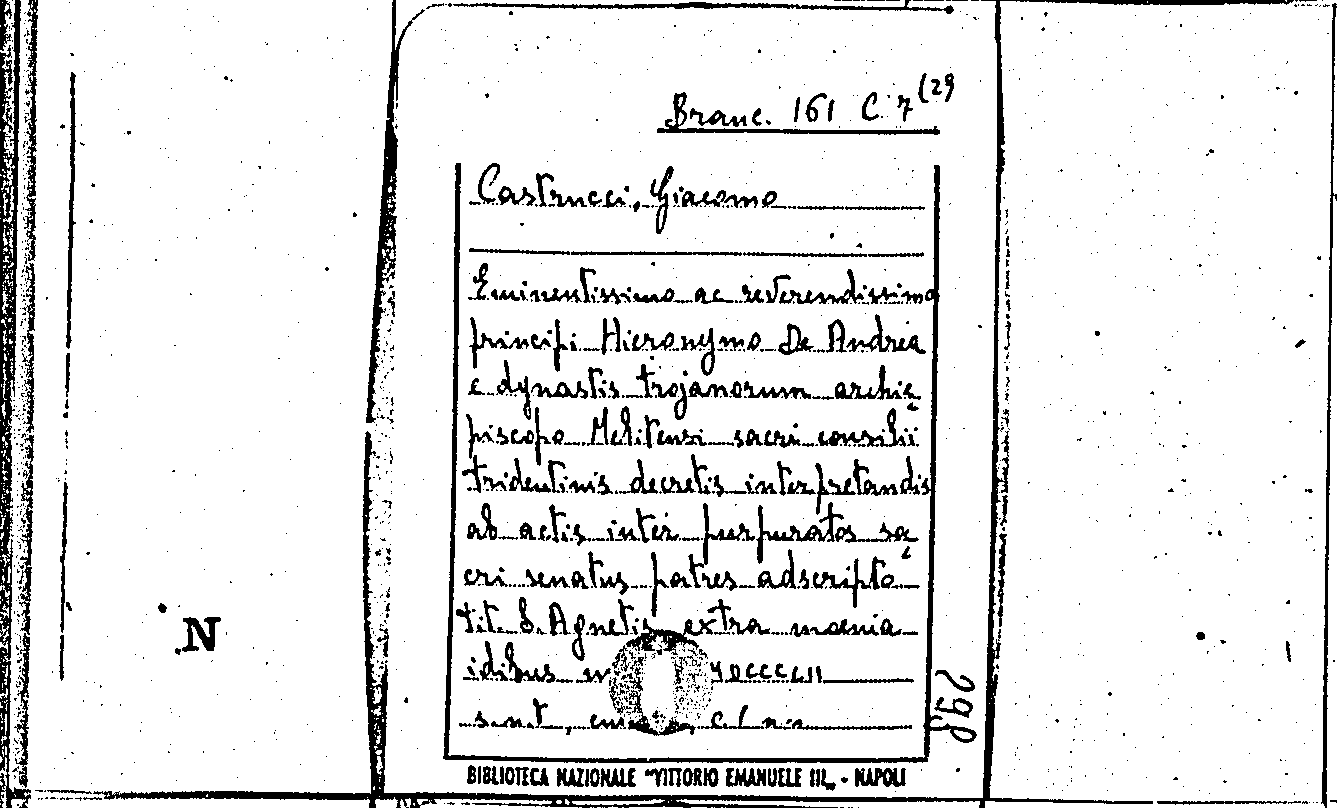 Branc. 161 C. 7 (29
Castrucci, Giacomo
Eminentissimo ac reverendissimo
principi Hieronymo De Andrea
e dynastis trojanorum archie
piscopo Melitensi sacri consilii
tridentinis decretis interpretandis
ab actis inter purpuratos sa
cri senatus patres adscripto
tit. S. Agnetis extra moenia
idibus MDCCCLII
s.n.t,
298
N
BIBLIOTECA NAZIONALE "VITTORIO EMANUELE III„ - NAPOLI